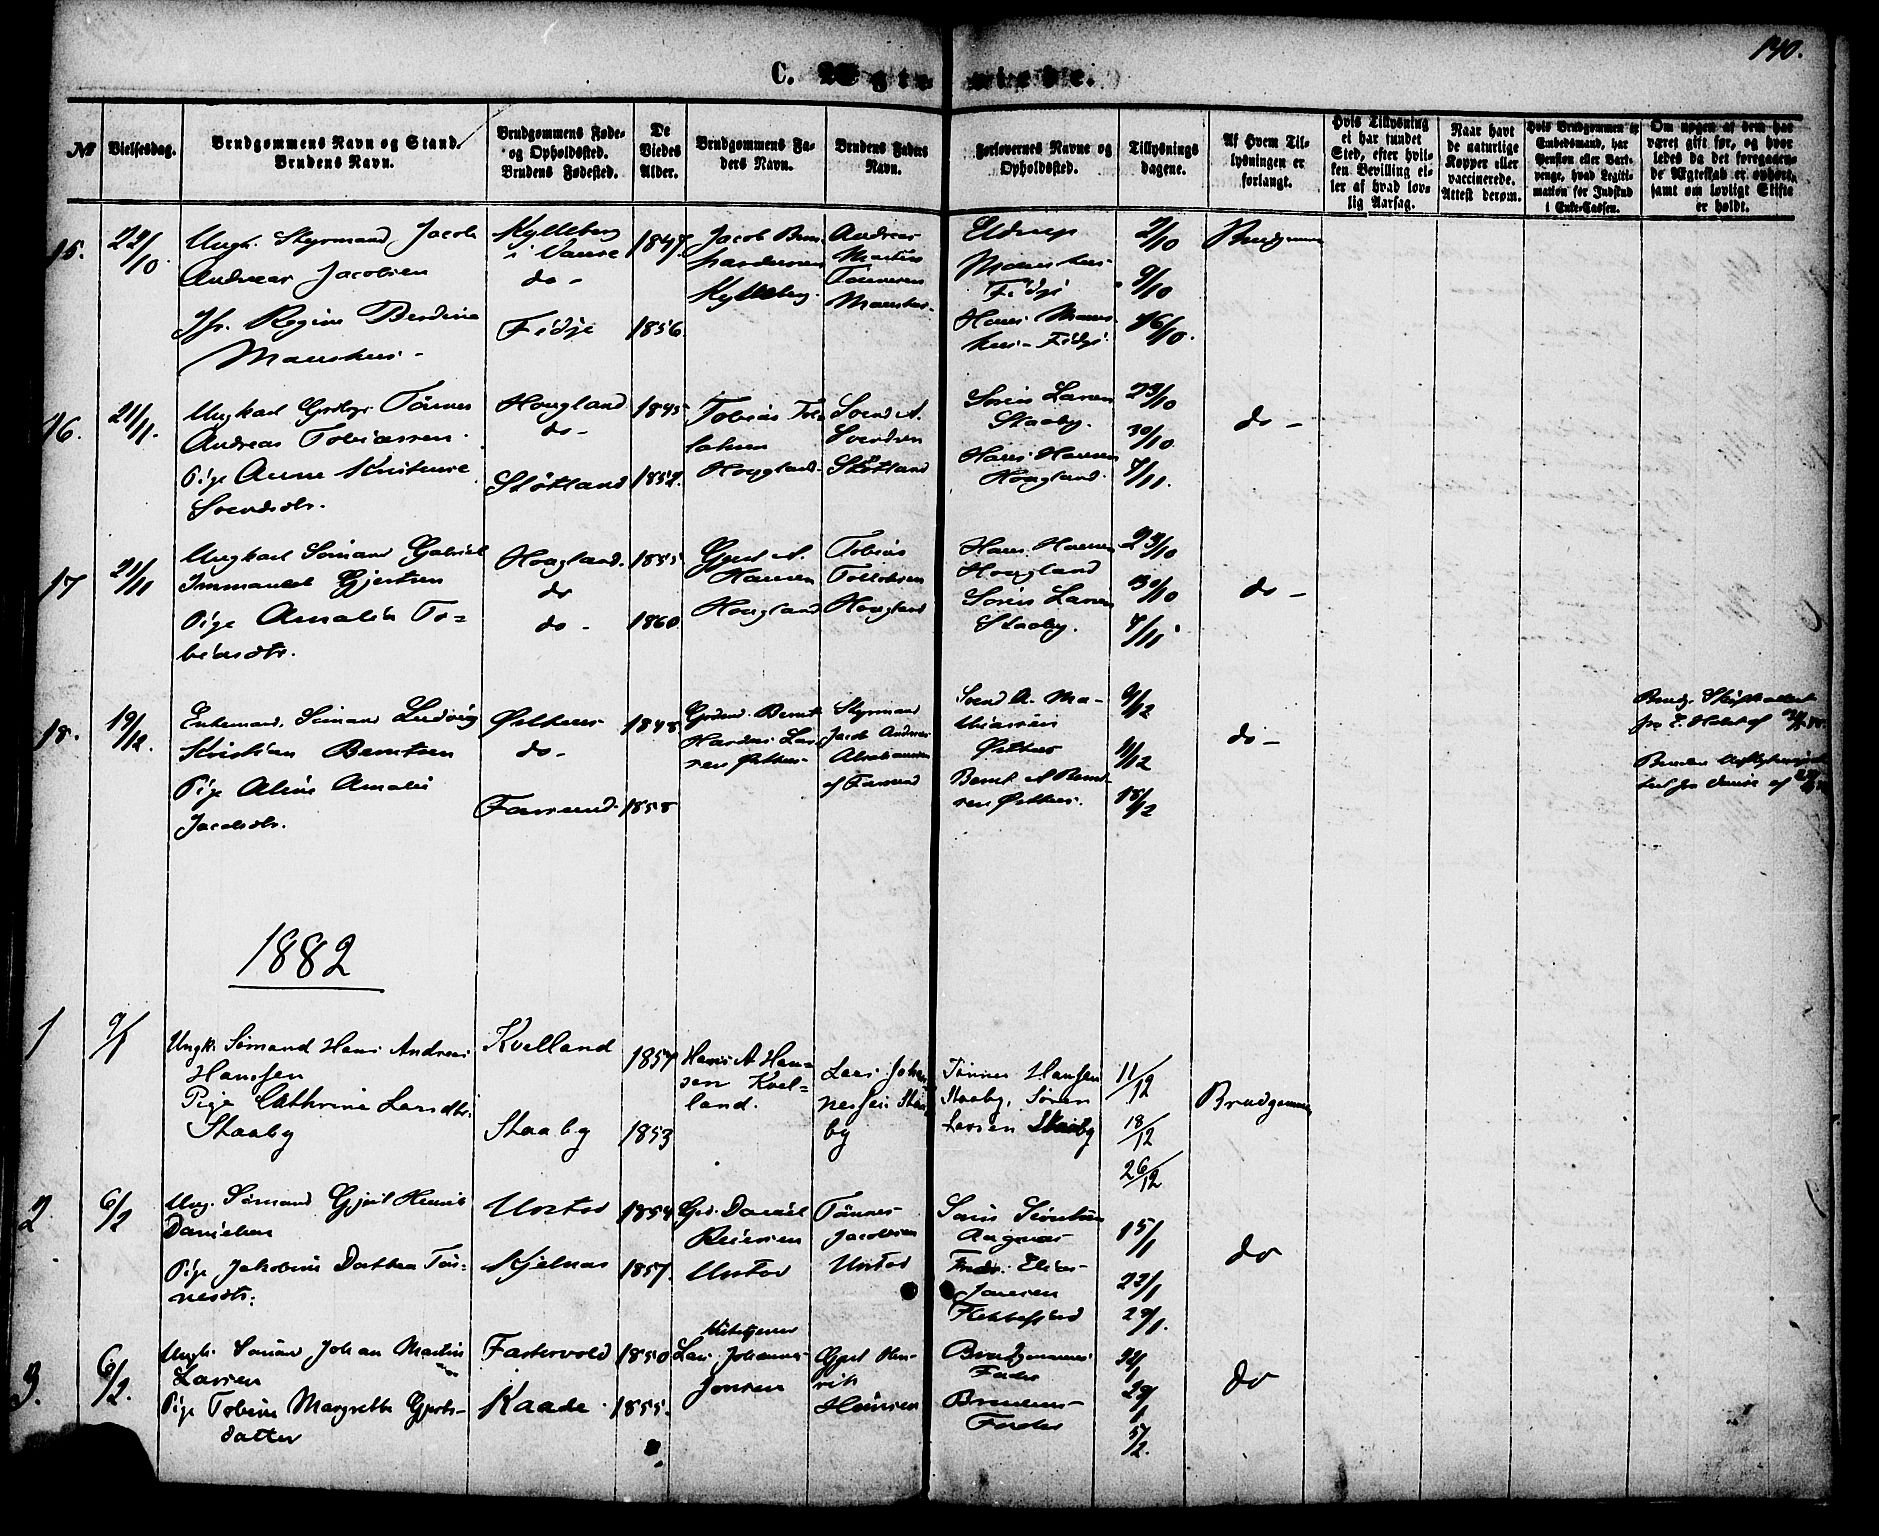 140.
C. Ægteviede.
№
Vielsesdag.
Brudgommens Navn og Stand.
Brudens Navn.
Brudgommens Føde-
og Opholdssted.
Brudens Fødested.
De
Viedes
Alder.
Brudgommens Fa-
ders Navn.
Brudens Faders
Navn.
Forlovernes Navne og
Opholdssted.
Tillysnings
dagene.
Af Hvem Til-
lysningen er
forlangt.
Hvis Tillysning
ei har fundet
Sted, efter hvil-
ken Bevilling el-
ler af hvad lov-
lig Aarsag.
Naar havt
de naturlige
Kopper eller
vaccinerede.
Attest derom.
Hvis Brudgommen er
Embedsmand, har
Pension eller Vart-
penge, hvad Legiti-
mation for Indskud
i Enke-Cassen.
Om nogen af dem har
været gift før, og hvor
ledes da det foregaaen-
de Ægteskab er ophørt,
samt om lovligt Skifte
er holdt.
15.
22/10.
Ungk. Styrmand Jacob
Andreas Jacobsen
Jfr. Regine Berdine
Manshus -
Kylleberg
i Vanse
do -
Fidje
1847.
1856.
Jacob Bern-
hardersen
Kylleberg.
Andreas
Martin
Tønnesen
Manshus.
Eldrup
Manshus
Fidje
Hans Mans-
hus - Fidje
2/10
9/10
16/10.
Brudgommen
16.
21/11.
Ungkarl Grdbgr. Tønnes
Andreas Tobiassen.
Pige Anne Kristense
Svendsdtr.
Hougland
do -
Støtland
1845
1852.
Tobias Tol-
laksen
Hougland.
Svend A.
Svendsen
Støtland
Søren Larsen
Staaby.
Hans Hansen
Hougland.
23/10
30/10.
7/11.
do -
17
21/11
Ungkarl Sømand Gabriel
Immanuel Gjertsen
Pige Amalia To-
biasdtr.
Hougland.
do
do -
1855
1860
Gjert A.
Hansen
Hougland
Tobias
Tollaksen
Hougland
Hans Hansen
Hougland
Søren Larsen
Staaby.
23/10
30/10
7/11.
do -
18.
19/12.
Enkemand. Sømand Ludvig
Kristian Berntsen
Pige Aline Amalie
Jacobsdtr.
Østhus
do -
Farsund.
1848
1858
Grdmd. Bernt
Hardus Lar-
sen Østhus -
Styrmand
Jacob Andreas
Abrahamsen
af Farsund
Svend A. Ma-
thiassen
Østhus
Bernt A Bernt-
sen Østhus.
4/12
11/12
18/12
do -
1882
1
9/1
Ungk. Sømand Hans Andreas
Hansen
Pige Cathrine Larsdtr.
Staaby
Kvelland
Staaby
1857
1853
Hans A Han-
sen Kvel-
land.
Lars Johan-
nessen Staa-
by
Tønnes Hansen
Staaby, Søren
Larsen Staaby
11/12
18/12
26/12
Brudgommen
2
6/2
Ung. Sømand Gjert Henrik
Danielsen
Pige Jakobine Dorthea Tøn-
nesdtr.
Urstad
Kjelnes
1854
1857.
Grd. Daniel
Reiersen
Urstad
Tønnes
Jacobsen
Urstad
Angnes
Elias
Jansen
Flekkefjord
15/1
22/1
29/1.
do
3.
6/2.
Ungk. Sømand Johan Martin
Larsen
Pige Tobine Margrethe Gjerts-
datter
Fastervold
Kaade.
1850
1855.
Lars Johannes
Jonsen
Gjert Hen-
rik
Hansen
Brudgommens
Fader
Brudens -
Fader
22/1
29/1
5/2.
do